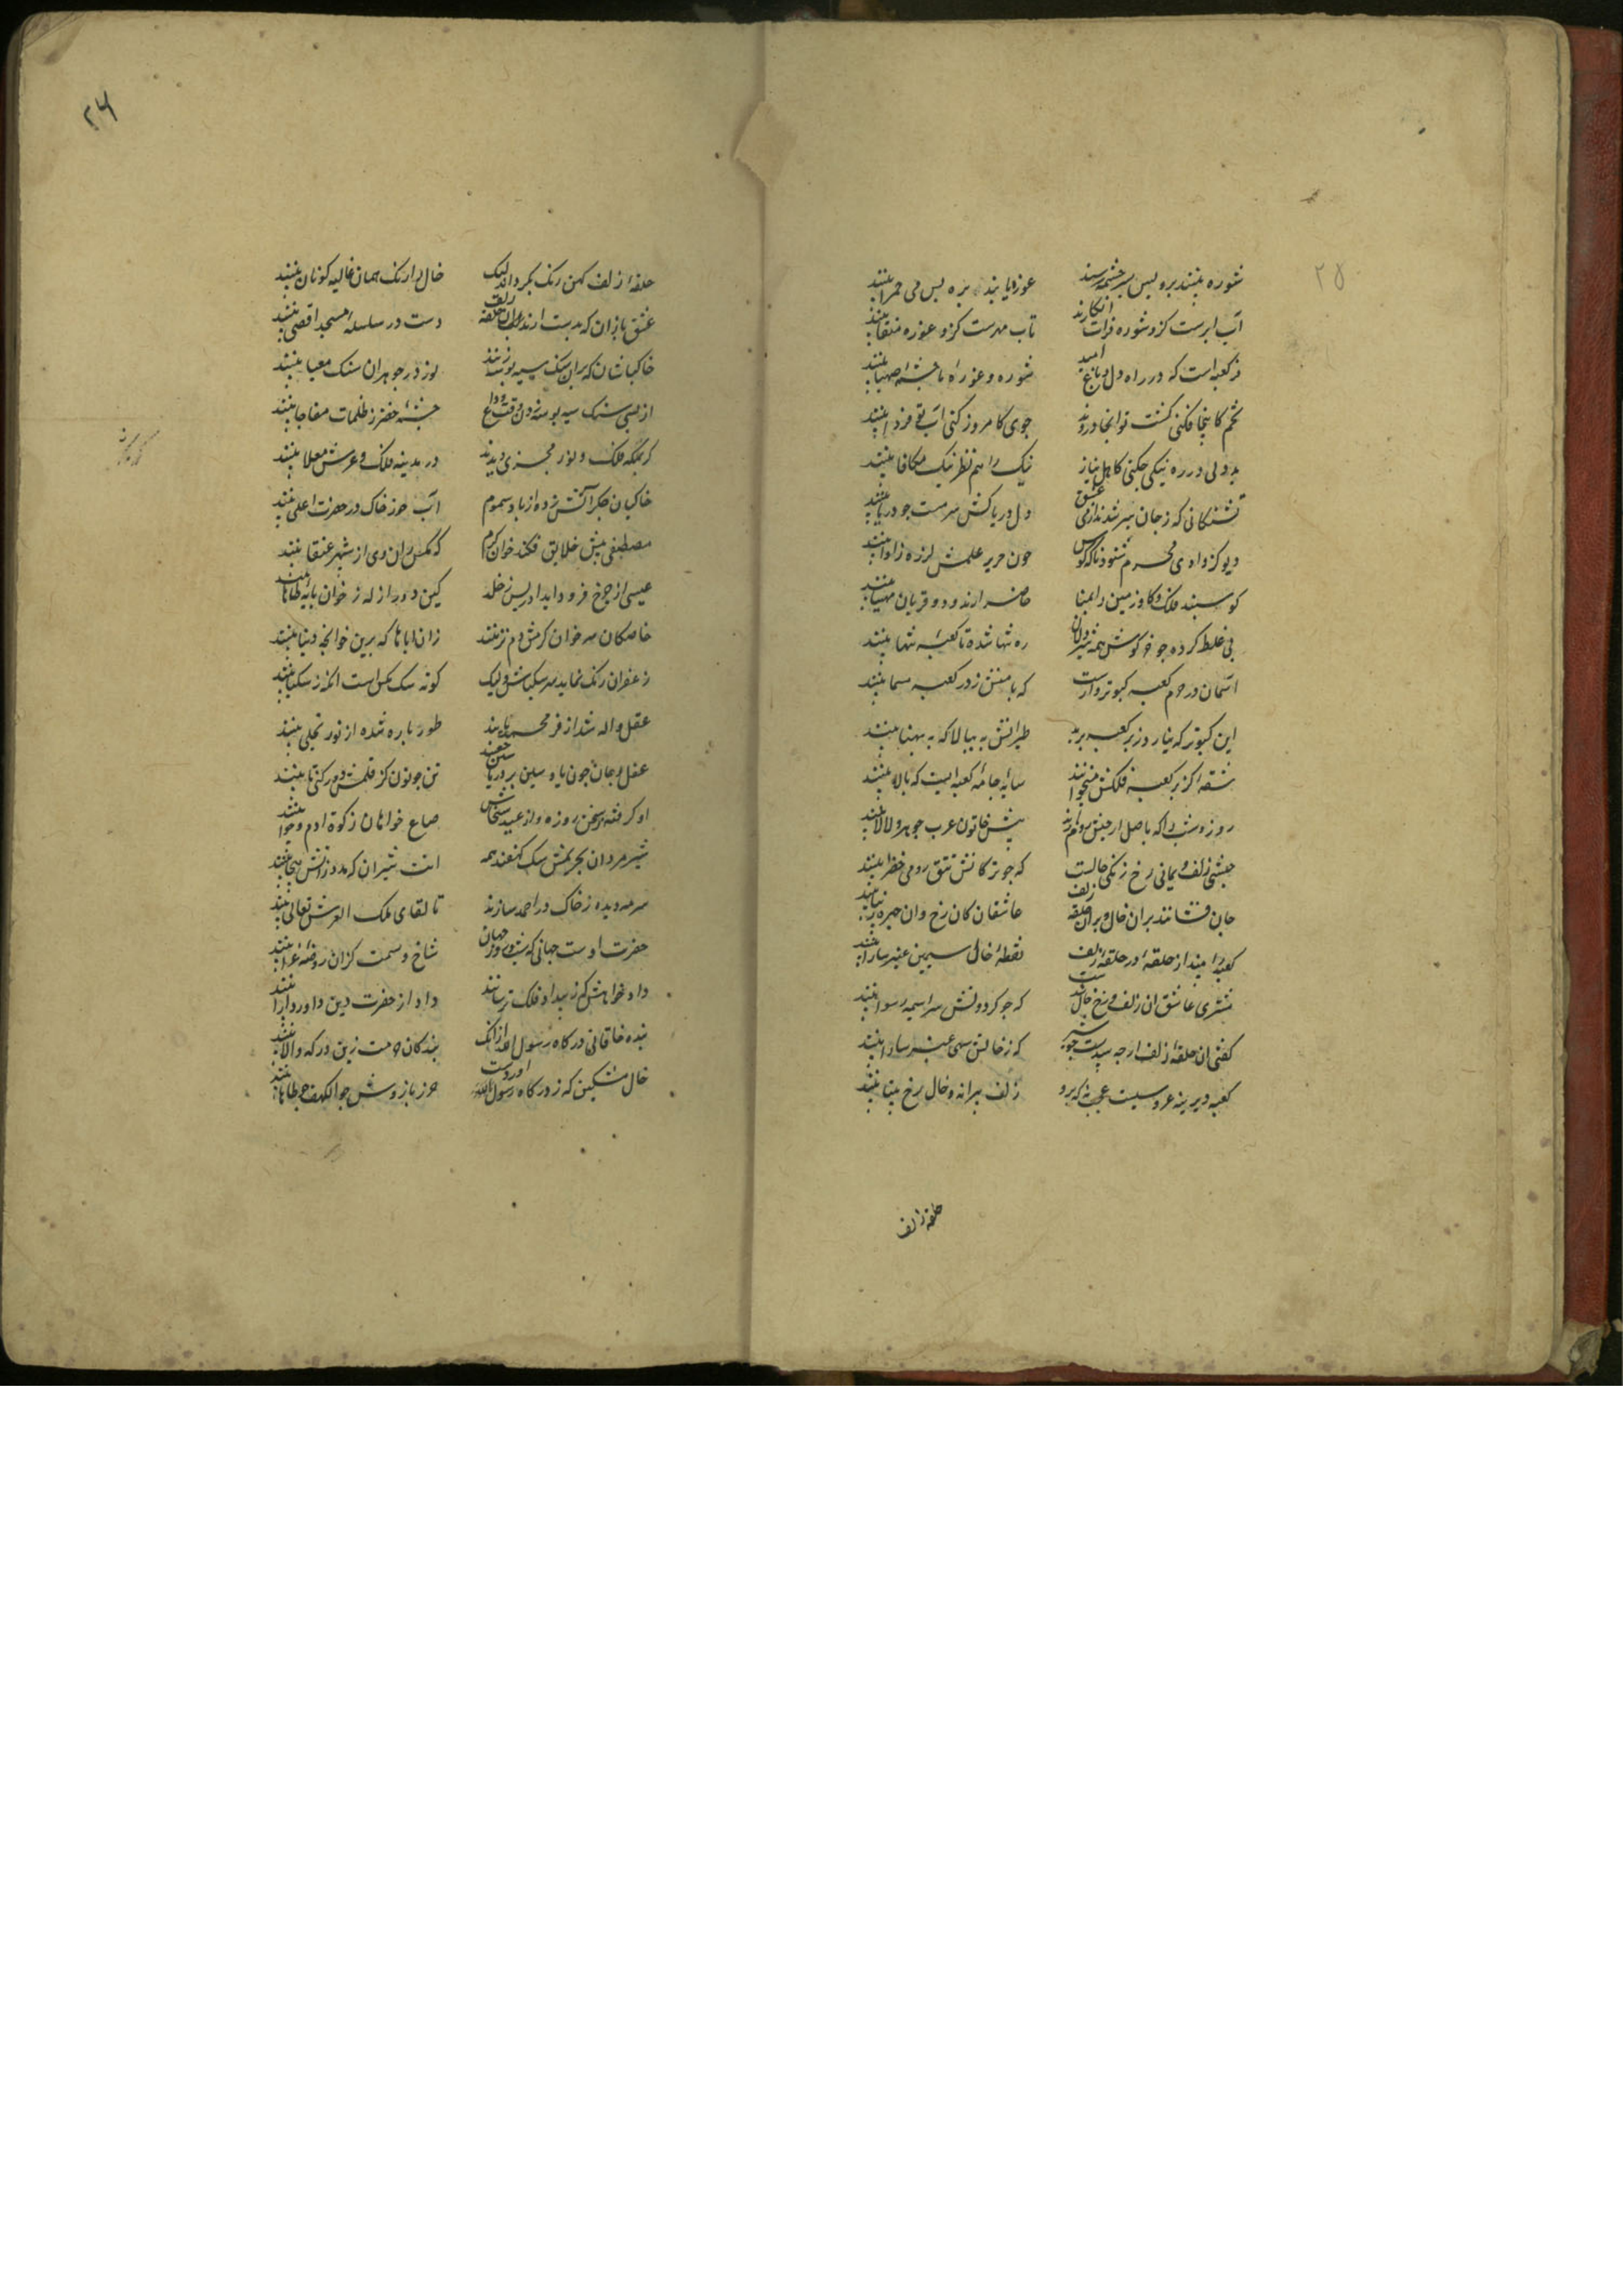 ۲۵
شوره بینند بره پس بسر چشمه رسند غوره یابند بره پس می حمرا بینند
آب ابرست کزو شوره فرات انکارند تاب مهرست کزو غوره منقا بینند
فر کعبه است که در راه دل و باغ امید شوره و غوره را چشمهٔ صهبا بینند
تخم کاینجا فکنی کشت تو آنجا دروند جوی کامروز کنی آب تو فردا بینند
بد دلی در ره نیکی چکنی کاهل نیاز نیک را هم نظر نیک مکافا بینند
تشنکانی که ز جان سیر شدند از می عشق دل دریاکش سرمست چو دریا بینند
دیو کز وادی محرم شنود ناله کوس چون حریر علمش لرزه ز اوا بینند
کوسپند فلک و کاو زمین را بمنا حاضر ارند و دو قربان مهیا بینند
پی غلط کرده چو خرکوش همه شیردلان ره تنها شده تا کعبه تنها بینند
آسمان در حرم کعبه کبوتروارست که بامنش ز در کعبه مسما بینند
این کبوتر که نیارد زبر کعبه برید طیرانش به ببالا که به پهنا بینند
شقهٔ کز بر کعبه فلکش میخوانند سایهٔ جامهٔ کعبه است که بالا بینند
روز و شب را که باصل از حبش و روم ارند پیش خاتون عرب جوهر و لالا بینند
حبشی زلف و یمانی رخ و زنکی خالست که چو ترکانش تتق رومی خضرا بینند
جان فشانند بران خال و بران حلقه زلف عاشقان کان رخ و ان چهره زیبا بینند
کعبه را بیند از حلقهٔ در حلقهٔ زلف نقطهٔ خال سیمین عنبر سارا بینند
مشتری عاشق ان زلف و رخ و خال شدست که چو کردونش سراسیمه رسوا بینند
کفتی ان حلقهٔ زلف ارچه سپیدست چو شیر که ز خالش سیهی عنبر سارا بینند
کعبه دیرینه عروسیست عجب نه که برو زلف پیرانه و خال رخ برنا بینند
حلقه زلف
۲۶
حلقهٔ زلف کهن رنک بکرداند لیک خال را رنک همان غالیه کونان بینند
عشق بازان که بدست ارند ان حلقه زلف دست در سلسلهٔ مسجد اقصی بینند
خاکپاشان که بران سنک سیه بوسه زنند نور در جوهر ان سنک معبا بینند
از بس سنک سیه بوسه زدن وقت وداع چشمهٔ خضر ز ظلمات مفاجا بینند
کر بمکه فلک و نور مجزی دیدند در مدینه ملک و عرش معلا بینند
خاکیان جکر آتش زده از باد سموم آب خور خاک در حضرت اعلی بینند
مصطفی پیش خلایق فکند خوان کرم که مکس ران وی از شهپر عنقا بینند
عیسی از چرخ فرود اید ادریس ز خلد کین دو را زله ز خوان پایهٔ طاها بینند
خاصکان سر خوان کرمش دم نزنند زان اباها که برین خوانچهٔ دنیا بینند
زعفران رنک نماید سر سکباش ولیک کونه سک مکس است انکه ز سکبا بینند
عقل واله شد از فر محمد یابند طور پاره شده از نور تجلی بینند
عقل و جان چون یا و سین بر در یاسین خفتند تن چو نون کز قلمش دور کنی تا بینند
او کرفته ز سخن روزه و از عید سخاش صاع خواهان زکوة ادم و حوا بینند
شیر مردان بحریمش سک کهفند همه انت شیران که مدد ز آتش هیجا بینند
سرمه دیده ز خاک در احمد سازند تا لقای ملک العرش تعالی بینند
حضرت اوست جهانی که شب و روز جهان شاخ و سمت کزان روضهٔ غرا بینند
داد خواهش کز بیداد فلک ترسانند داد از حضرت دین داور دارا بینند
بنده خاقانی و درکاه رسول الله از انک بندکان حرمت زین درکه والا بینند
خال مشکین که ز درکاه رسول الله اوردست حرز بازوش چو الکهف و چو طاها بینند